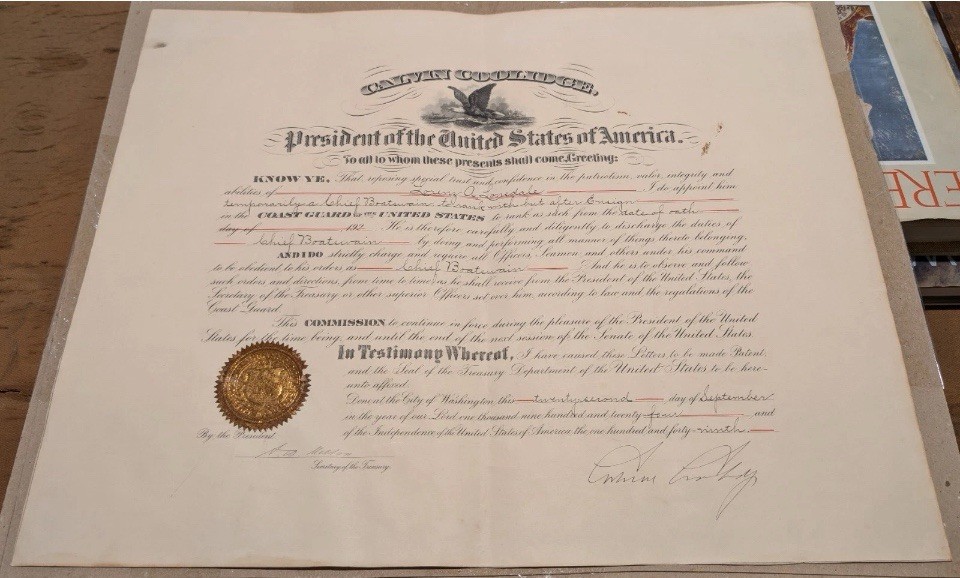 CALVIN COOLIDGE,
President of the United States of America.
To all to whom these presents shall come, Greeting:
KNOW YE, That reposing special trust and confidence in the patriotism, valor, integrity and
abilities of Lonsdale I do appoint him
temporarily a Chief Boatswain to rank with but after Ensign
in the COAST GUARD OF THE UNITED STATES to rank as such from the date of oath
day of , 192 . He is therefore carefully and diligently to discharge the duties of
Chief Boatswain by doing and performing all manner of things thereto belonging.
AND I DO strictly charge and require all Officers, Seamen and others under his command
to be obedient to his orders as Chief Boatswain And he is to observe and follow
such orders and directions, from time to time, as he shall receive from the President of the United States, the
Secretary of the Treasury or other superior Officers set over him, according to law and the regulations of the
Coast Guard.
This COMMISSION to continue in force during the pleasure of the President of the United
States for the time being, and until the end of the next session of the Senate of the United States.
In Testimony Whereof, I have caused these Letters to be made Patent,
and the Seal of the Treasury Department of the United States to be here-
unto affixed.
Done at the City of Washington, this twenty second day of September
in the year of our Lord one thousand nine hundred and twenty four and
of the Independence of the United States of America, the one hundred and forty ninth.
By the President:
Calvin Coolidge
Secretary of the Treasury.
ERE